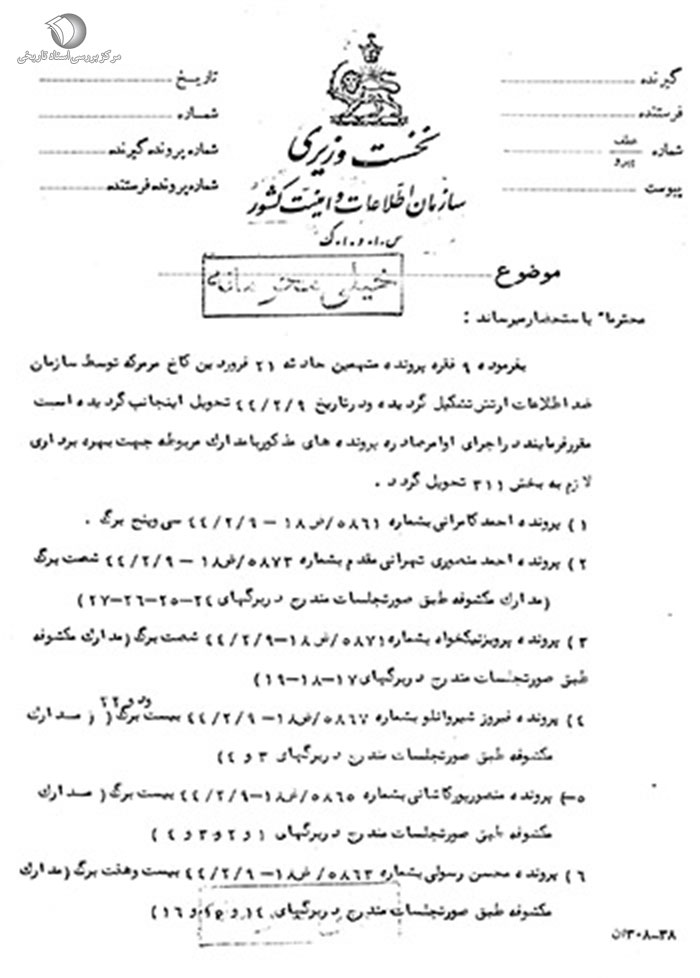 مرکز بررسی اسناد تاریخی
گیرنده
فرستنده
شماره عطف پیرو
پیوست
تاریخ
شماره
شماره پرونده گیرنده
شماره پرونده فرستنده
نخست وزیری
سازمان اطلاعات و امنیت کشور
س.ا.و.ا.ک
موضوع
خیلی محرمانه
محترما" باستحضار میرساند :
بفرموده ۹ فقره پرونده متهمین حادثه ۲۱ فروردین کاخ مرمر که توسط سازمان
ضد اطلاعات ارتش تشکیل گردیده و در تاریخ ۴۴/۲/۹ تحویل اینجانب گردیده است
مقرر فرمایند در اجرای اوامر صادره پرونده های مذکور با مدارک مربوطه جهت بهره برداری
لازم به بخش ۳۱۱ تحویل گردد .
۱) پرونده احمد کامرانی بشماره ۵۸۶۱/ض۱۸ - ۴۴/۲/۹ سی وپنج برگ .
۲) پرونده احمد منصوری تهرانی مقدم بشماره ۵۸۷۳/ض۱۸ - ۴۴/۲/۹ شصت برگ
(مدارک مکشوفه طبق صورتجلسات مندرج در برگهای ۲۴-۲۵-۲۶-۲۷)
۳) پرونده پرویز نیکخواه بشماره ۵۸۷۱/ض۱۸-۴۴/۲/۹ شصت برگ (مدارک مکشوفه
طبق صورتجلسات مندرج در برگهای ۱۷-۱۸-۱۹)
۴) پرونده فیروز شیروانلو بشماره ۵۸۶۷/ض۱۸-۴۴/۲/۹ بیست ودو ۲۲ برگ ( مدارک
مکشوفه طبق صورتجلسات مندرج در برگهای ۳ و ۴)
۵-) پرونده منصور پورکاشانی بشماره ۵۸۶۵/ض۱۸-۴۴/۲/۹ بیست برگ ( مدارک
مکشوفه طبق صورتجلسات مندرج در برگهای ۱ و ۲ و ۳ و ۴ )
۶) پرونده محسن رسولی بشماره ۵۸۶۳/ض۱۸-۴۴/۲/۹ بیست وهفت برگ (مدارک
مکشوفه طبق صورتجلسات مندرج در برگهای ۱۴ و ۱۵ و ۱۶)
۳۸-۳۰۸